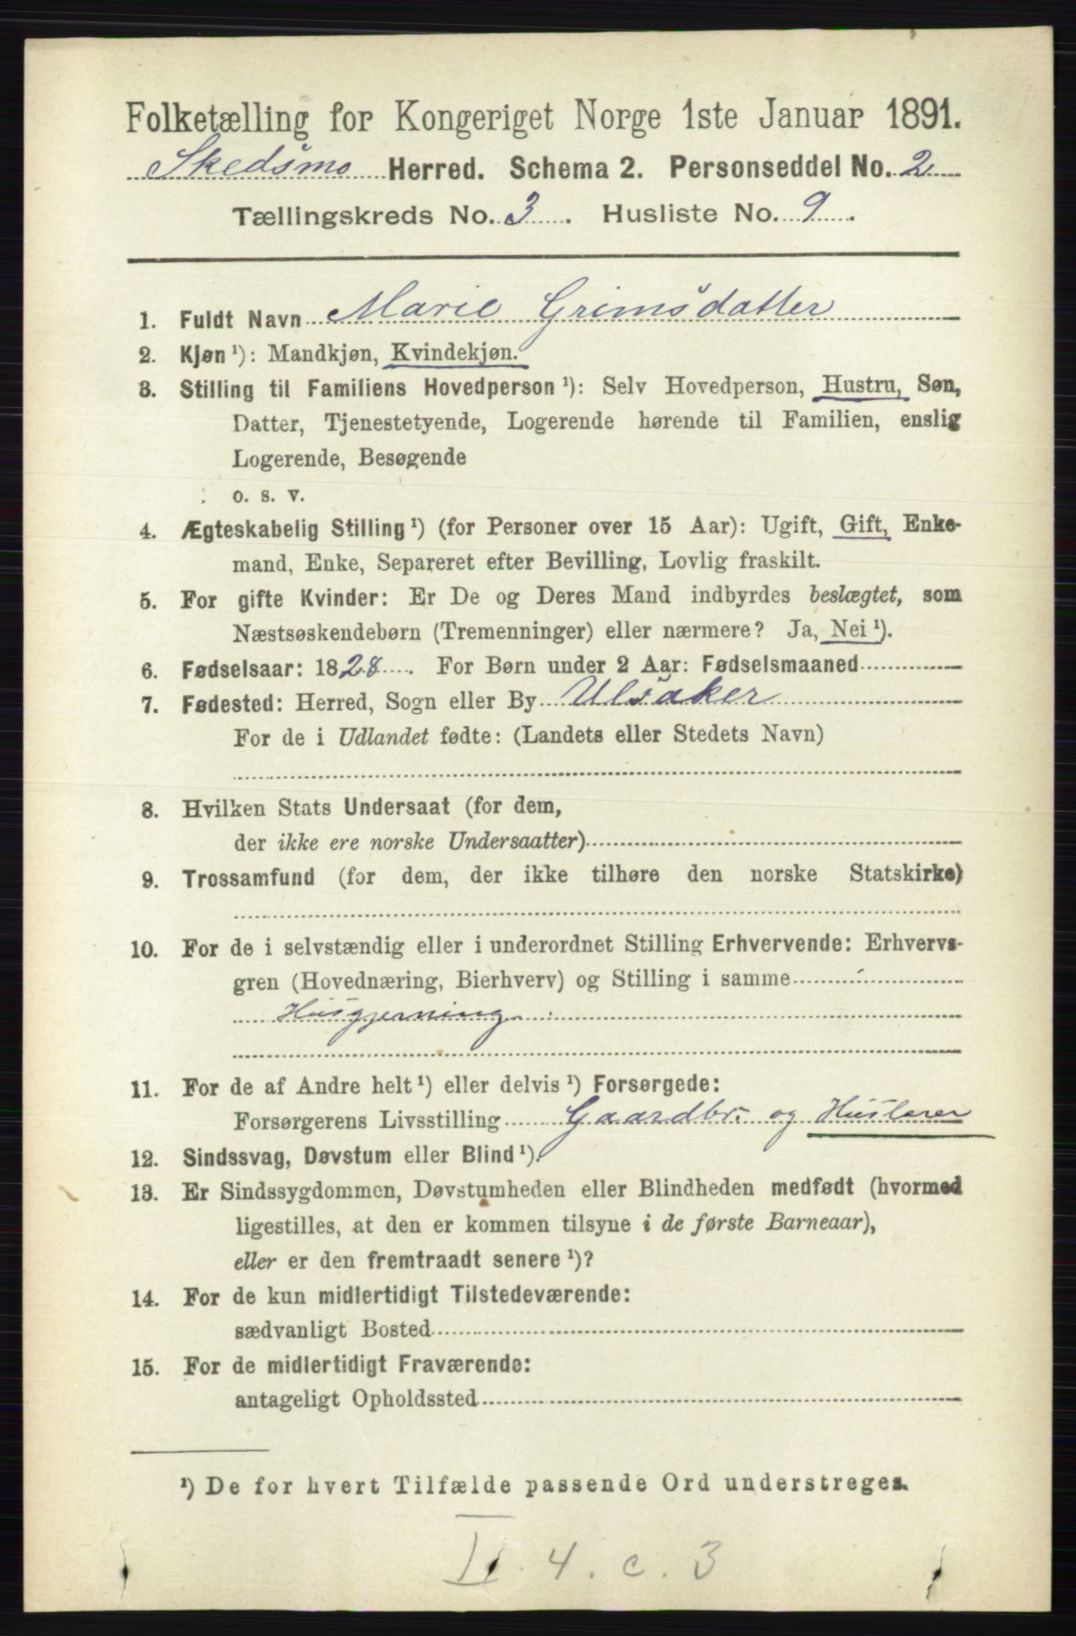 Folketælling for Kongeriget Norge 1ste Januar 1891.
Skedsmo Herred. Schema 2. Personseddel No. 2
Tællingskreds No. 3. Husliste No. 9.
1. Fuldt Navn Marie Grimsdatter
2. Kjøn ¹): Mandkjøn, Kvindekjøn.
3. Stilling til Familiens Hovedperson ¹): Selv Hovedperson, Hustru, Søn,
Datter, Tjenestetyende, Logerende hørende til Familien, enslig
Logerende, Besøgende
o. s. v.
4. Ægteskabelig Stilling ¹) (for Personer over 15 Aar): Ugift, Gift, Enke-
mand, Enke, Separeret efter Bevilling, Lovlig fraskilt.
5. For gifte Kvinder: Er De og Deres Mand indbyrdes beslægtet, som
Næstsøskendebørn (Tremenninger) eller nærmere? Ja, Nei ¹).
6. Fødselsaar: 1828. For Børn under 2 Aar: Fødselsmaaned
7. Fødested: Herred, Sogn eller By Ulsaker
For de i Udlandet fødte: (Landets eller Stedets Navn)
8. Hvilken Stats Undersaat (for dem,
der ikke ere norske Undersaatter)
9. Trossamfund (for dem, der ikke tilhøre den norske Statskirke)
10. For de i selvstændig eller i underordnet Stilling Erhvervende: Erhvervs-
gren (Hovednæring, Bierhverv) og Stilling i samme
Husgjerning
11. For de af Andre helt ¹) eller delvis ¹) Forsørgede:
Forsørgerens Livsstilling Gaardbr. og Huslærer
12. Sindssvag, Døvstum eller Blind ¹).
13. Er Sindssygdommen, Døvstumheden eller Blindheden medfødt (hvormed
ligestilles, at den er kommen tilsyne i de første Barneaar),
eller er den fremtraadt senere ¹)?
14. For de kun midlertidigt Tilstedeværende:
sædvanligt Bosted
15. For de midlertidigt Fraværende:
antageligt Opholdssted
¹) De for hvert Tilfælde passende Ord understreges.
II. 4. c. 3